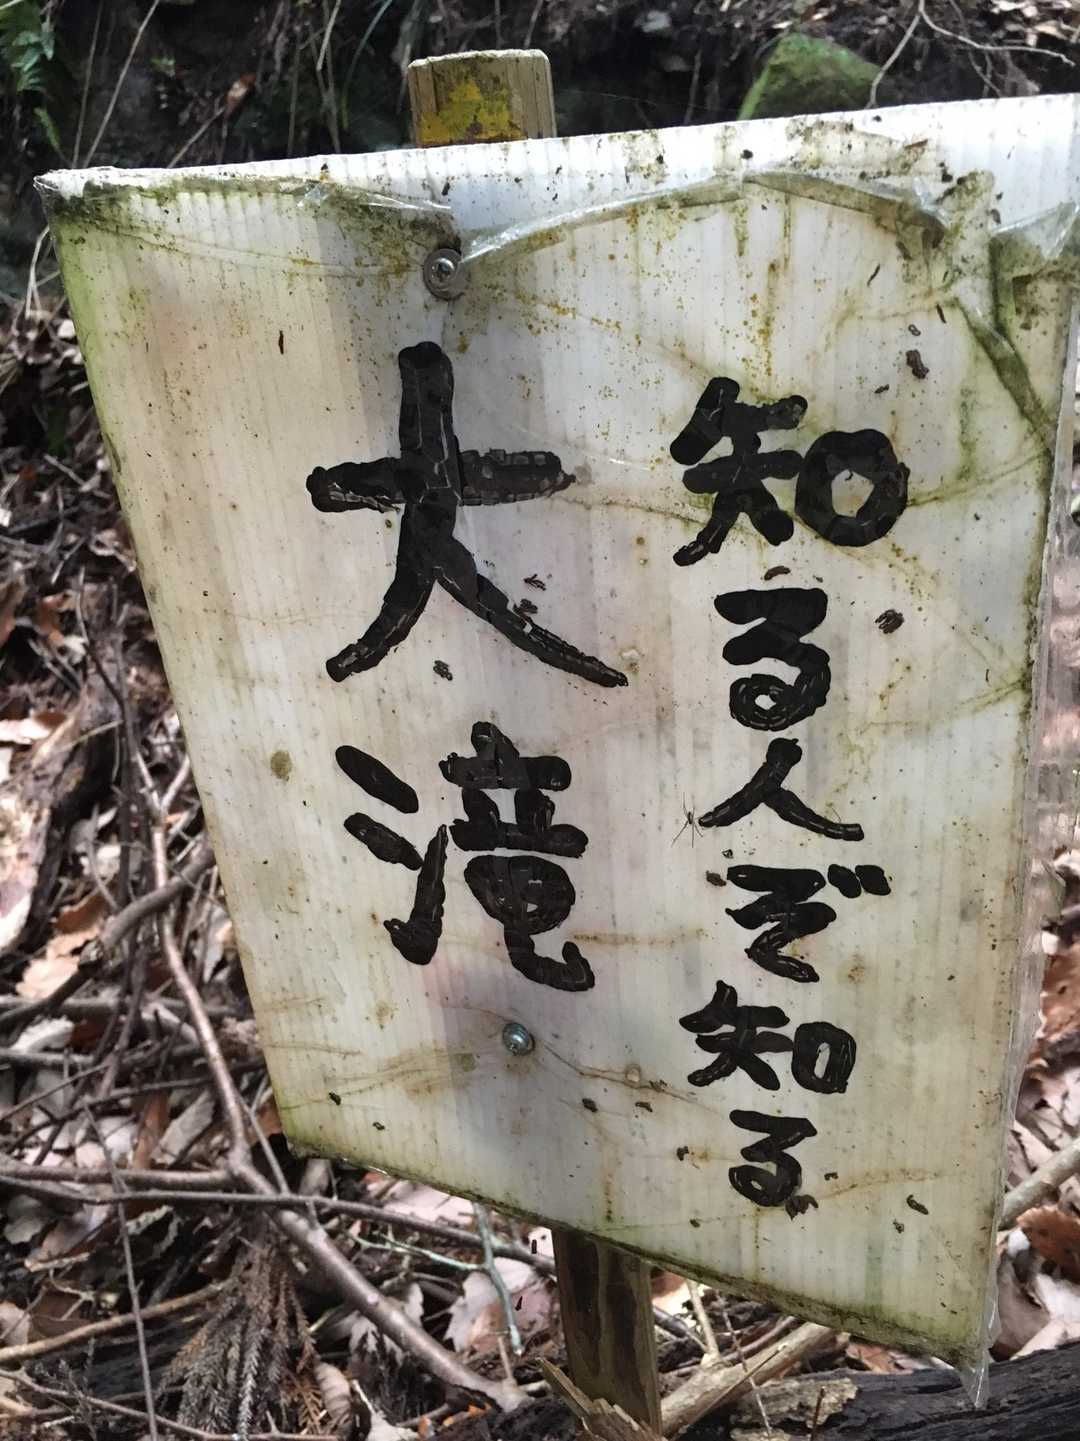 知る人ぞ知る
大滝